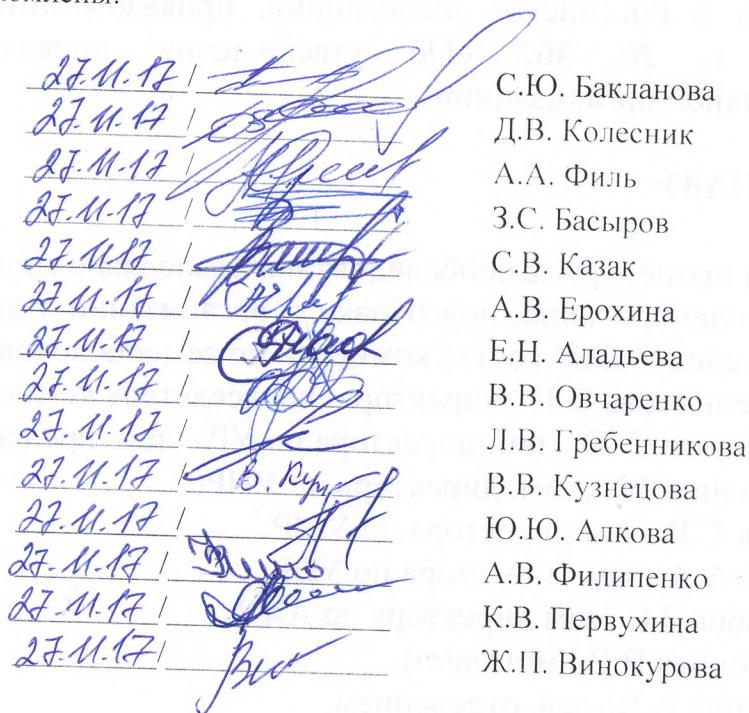 27.11.17 / С.Ю. Бакланова
27.11.17 / Д.В. Колесник
27.11.17 / А.А. Филь
27.11.17 / З.С. Басыров
27.11.17 / С.В. Казак
27.11.17 / А.В. Ерохина
27.11.17 / Е.Н. Аладьева
27.11.17 / В.В. Овчаренко
27.11.17 / Л.В. Гребенникова
27.11.17 / В. Куз В.В. Кузнецова
27.11.17 / Ю.Ю. Алкова
27.11.17 / А.В. Филипенко
27.11.17 / К.В. Первухина
27.11.17 / Ж.П. Винокурова